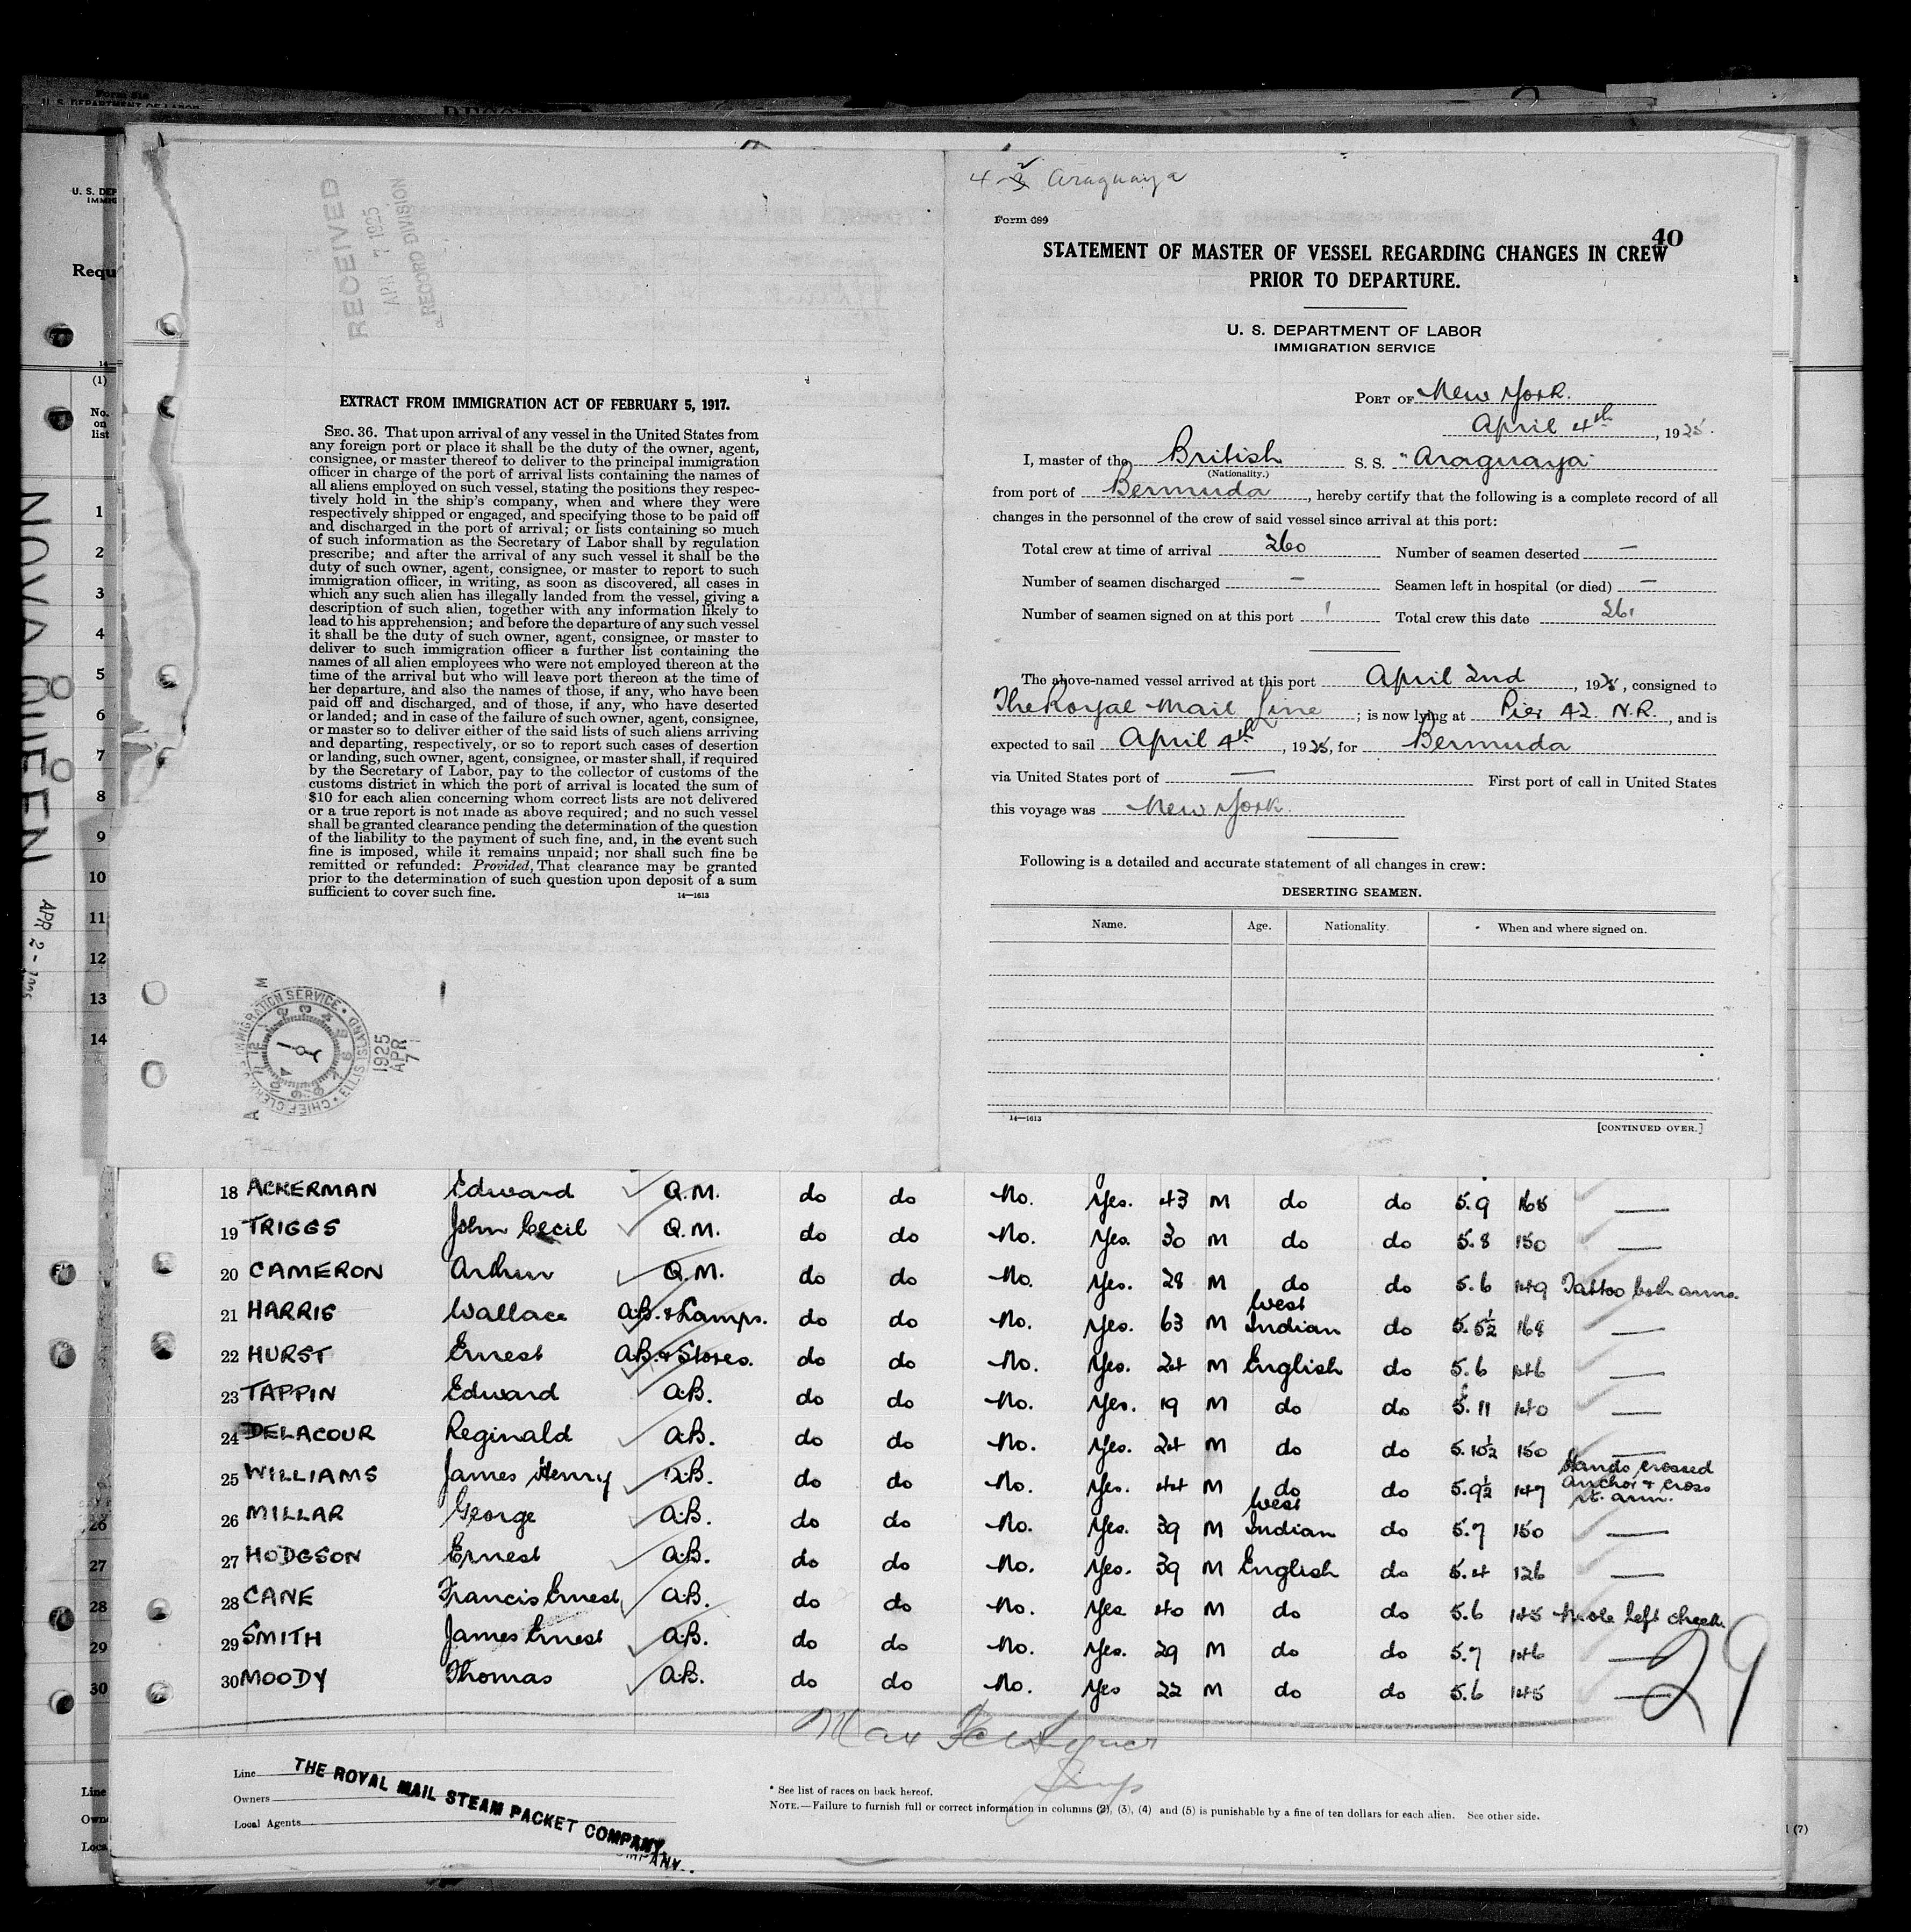 Form 689
U. S. DEPARTMENT OF LABOR
U. S. DEP
IMMIG
Requ
14—
(1)
No.
on
list
1
2
3
4
5
6
7
8
9
10
11
12
13
14
26
27
28
29
30
Line
Own
Loca
NOVA QUEEN
APR 2 - 1925
RECEIVED
APR 7 1925
RECORD DIVISION
EXTRACT FROM IMMIGRATION ACT OF FEBRUARY 5, 1917.
SEC. 36. That upon arrival of any vessel in the United States from
any foreign port or place it shall be the duty of the owner, agent,
consignee, or master thereof to deliver to the principal immigration
officer in charge of the port of arrival lists containing the names of
all aliens employed on such vessel, stating the positions they respec-
tively hold in the ship's company, when and where they were
respectively shipped or engaged, and specifying those to be paid off
and discharged in the port of arrival; or lists containing so much
of such information as the Secretary of Labor shall by regulation
prescribe; and after the arrival of any such vessel it shall be the
duty of such owner, agent, consignee, or master to report to such
immigration officer, in writing, as soon as discovered, all cases in
which any such alien has illegally landed from the vessel, giving a
description of such alien, together with any information likely to
lead to his apprehension; and before the departure of any such vessel
it shall be the duty of such owner, agent, consignee, or master to
deliver to such immigration officer a further list containing the
names of all alien employees who were not employed thereon at the
time of the arrival but who will leave port thereon at the time of
her departure, and also the names of those, if any, who have been
paid off and discharged, and of those, if any, who have deserted
or landed; and in case of the failure of such owner, agent, consignee,
or master so to deliver either of the said lists of such aliens arriving
and departing, respectively, or so to report such cases of desertion
or landing, such owner, agent, consignee, or master shall, if required
by the Secretary of Labor, pay to the collector of customs of the
customs district in which the port of arrival is located the sum of
$10 for each alien concerning whom correct lists are not delivered
or a true report is not made as above required; and no such vessel
shall be granted clearance pending the determination of the question
of the liability to the payment of such fine, and, in the event such
fine is imposed, while it remains unpaid; nor shall such fine be
remitted or refunded: Provided, That clearance may be granted
prior to the determination of such question upon deposit of a sum
sufficient to cover such fine.
14—1613
IMMIGRATION SERVICE • ELLIS ISLAND • CHIEF CLERK
1925
APR
7
Araguaya
Form 689
40
STATEMENT OF MASTER OF VESSEL REGARDING CHANGES IN CREW
PRIOR TO DEPARTURE.
U. S. DEPARTMENT OF LABOR
IMMIGRATION SERVICE
PORT OF New York.
April 4th, 1925.
I, master of the British S. S. "Araguaya"
(Nationality.)
from port of Bermuda, hereby certify that the following is a complete record of all
changes in the personnel of the crew of said vessel since arrival at this port:
Total crew at time of arrival 260 Number of seamen deserted —
Number of seamen discharged — Seamen left in hospital (or died) —
Number of seamen signed on at this port 1 Total crew this date 261
The above-named vessel arrived at this port April 2nd, 1925, consigned to
The Royal Mail Line; is now lying at Pier 42 N.R., and is
expected to sail April 4th, 1925, for Bermuda
via United States port of — First port of call in United States
this voyage was New York.
Following is a detailed and accurate statement of all changes in crew:
DESERTING SEAMEN.
Name. Age. Nationality. When and where signed on.
14—1613
[CONTINUED OVER.]
18 ACKERMAN Edward Q.M. do do No. Yes. 43 M do do 5.9 168 —
19 TRIGGS John Cecil Q.M. do do No. Yes. 30 M do do 5.8 150 —
20 CAMERON Arthur Q.M. do do No. Yes. 28 M do do 5.6 149 Tattoo both arms.
21 HARRIS Wallace A.B. & Lamps. do do No. Yes. 63 M West Indian do 5.5½ 168 —
22 HURST Ernest A.B. & Stores. do do No. Yes. 24 M English do 5.6 146 —
23 TAPPIN Edward A.B. do do No. Yes. 19 M do do 5.11 140 —
24 DELACOUR Reginald A.B. do do No. Yes. 24 M do do 5.10½ 150 —
25 WILLIAMS James Henry A.B. do do No. Yes. 44 M do do 5.9½ 147 Hands crossed anchor & cross rt. arm.
26 MILLAR George A.B. do do No. Yes. 39 M West Indian do 5.7 150 —
27 HODGSON Ernest A.B. do do No. Yes. 39 M English do 5.4 126 —
28 CANE Francis Ernest A.B. do do No. Yes 40 M do do 5.6 145 Mole left cheek.
29 SMITH James Ernest A.B. do do No. Yes. 29 M do do 5.7 146 —
30 MOODY Thomas A.B. do do No. Yes 22 M do do 5.6 145 —
29
Line
Owners
Local Agents
THE ROYAL MAIL STEAM PACKET COMPANY.
* See list of races on back hereof.
NOTE.—Failure to furnish full or correct information in columns (2), (3), (4) and (5) is punishable by a fine of ten dollars for each alien. See other side.
(7)